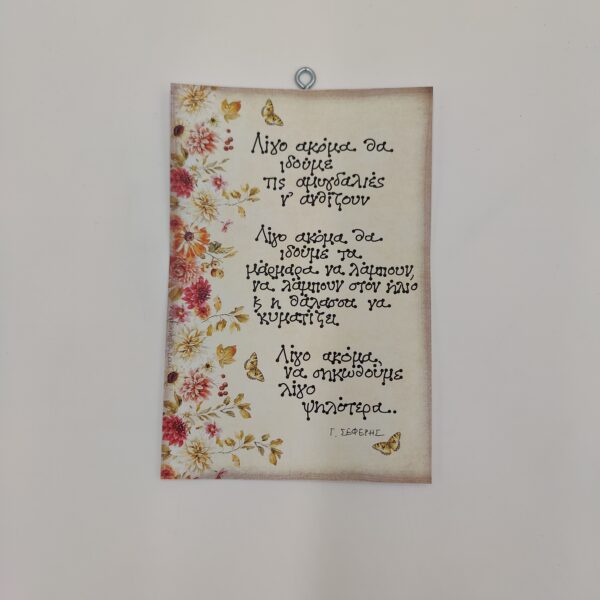 Λίγο ακόμα θα
ιδούμε
τις αμυγδαλιές
ν' ανθίζουν
Λίγο ακόμα θα
ιδούμε τα
μάρμαρα να λάμπουν,
να λάμπουν στον ήλιο
κ η θάλασσα να
κυματίζει
Λίγο ακόμα,
να σηκωθούμε
λίγο
ψηλότερα..
Γ. ΣΕΦΕΡΗΣ